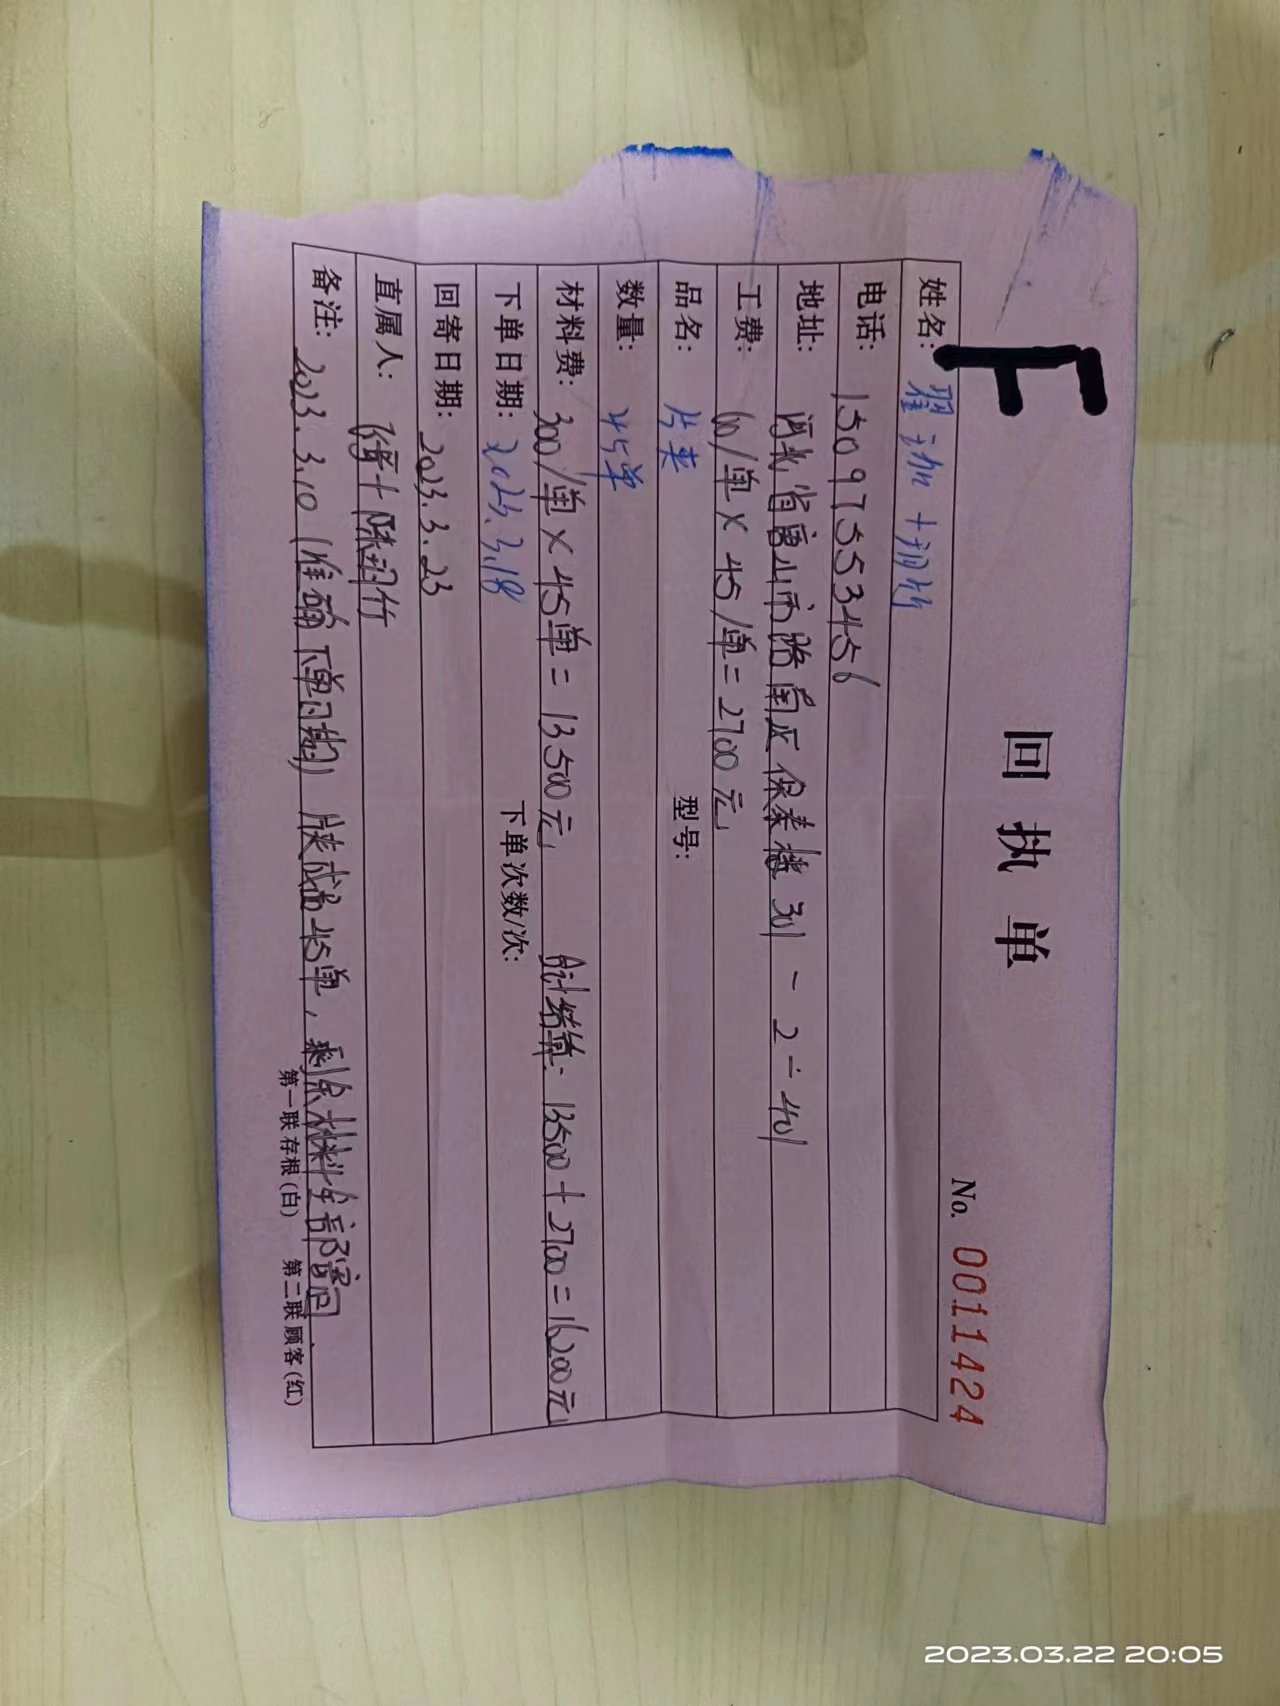 回执单
No. 0011424
姓名: 翟
电话: 15097553456
地址: 河北省唐山市路南区保泰楼 301-2-401
工费: 60/单×45/单=2700元
品名: 型号:
数量: 45单
材料费: 300/单×45单=13500元, 合计结算: 13500+2700=16200元,
下单日期: 2023.3.18 下单次数/次:
回寄日期: 2023.3.23
直属人:
备注: 2023.3.10 (准确下单日期) 成品45单, 剩余材料全部寄回
第一联 存根(白) 第二联 顾客(红)
2023.03.22 20:05